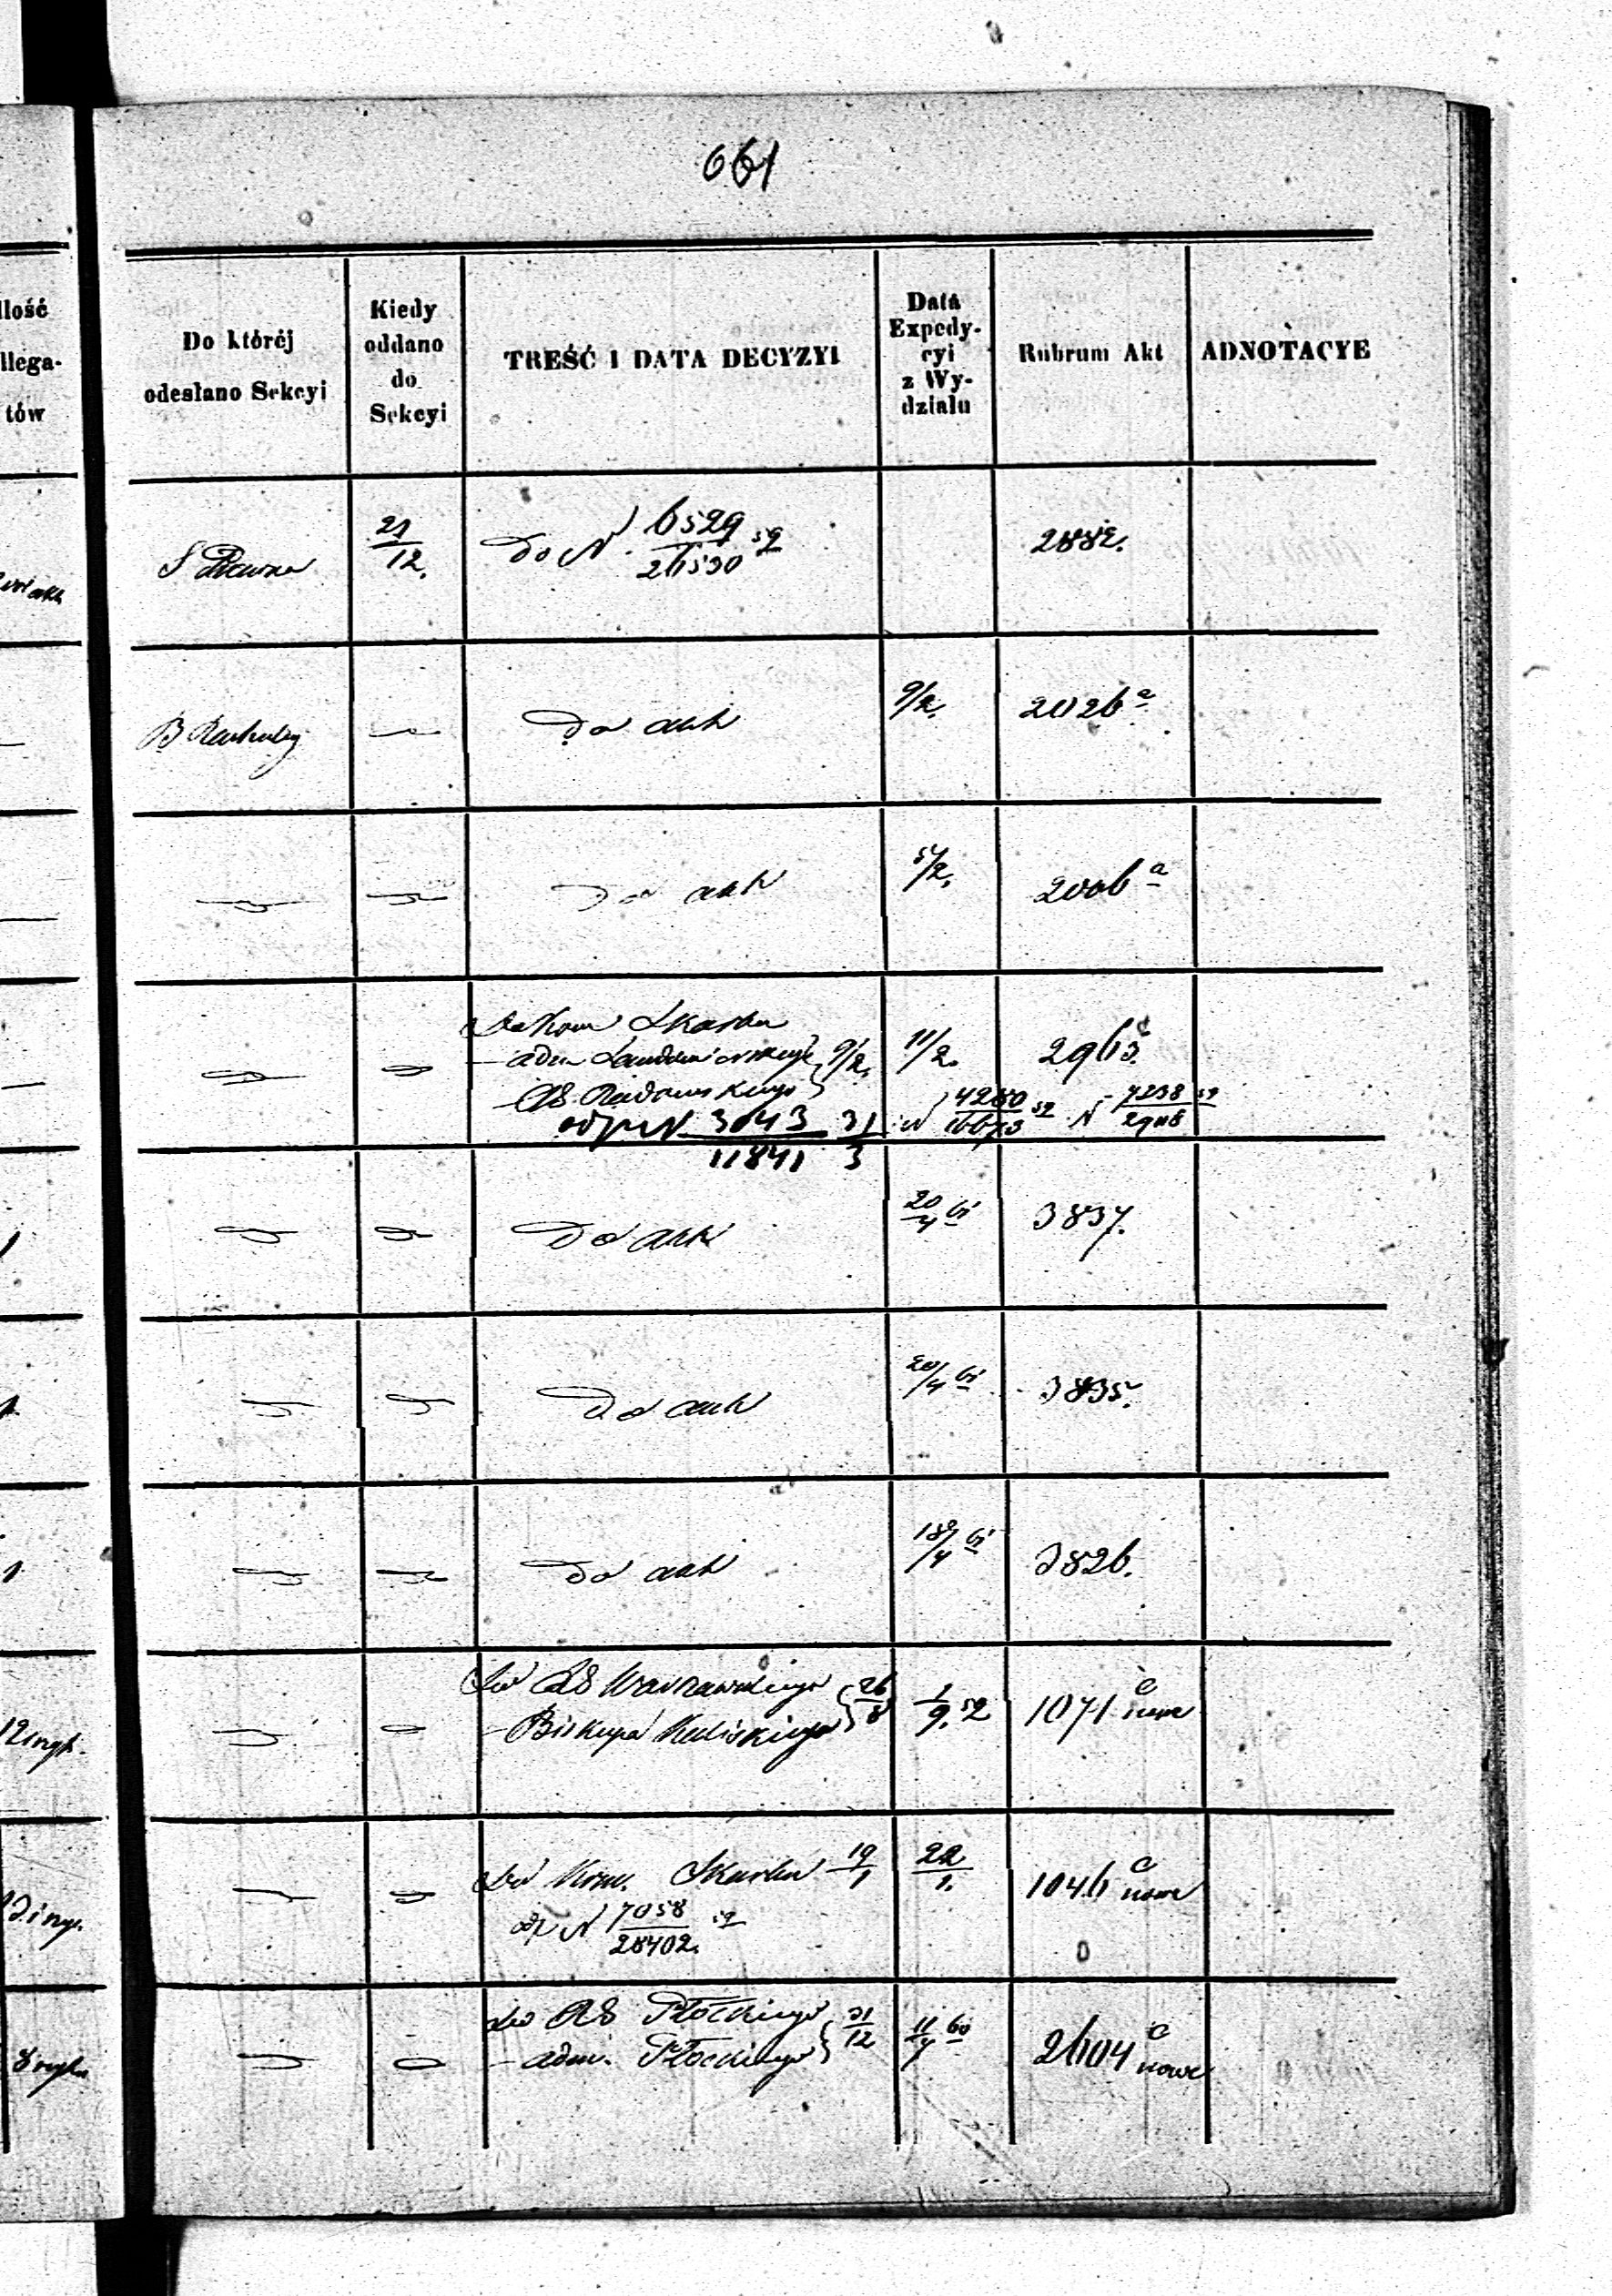 661
Ilość
llega-
tów
Do któréj
odesłano Sekcyi
Kiedy
oddano
do
Sekcyi
TREŚĆ I DATA DECYZYI
Data
Expedy-
cyi
z Wy-
działu
Rubrum Akt
ADNOTACYE
S Prawna
21/12.
Do N. 6529/26590 59
2882.
B Rachuby
Do akt
9/2.
2026 a
Do akt
5/2.
2006 a
Do Kom Skarbu
- adm Sandomierskiego
- RG Radomskiego
9/2.
odp N 3043/11841 31/3
11/2.
2963. c
N 4260/16673 52
N 7238/29118 59
Do akt
20/4 61
3837.
Do akt
20/4 61
3835.
Do akt
18/4 61
3826.
Do RG Warszawskiego
- Biskupa Kaliskiego
26/8
1/9. 52
1071 c nowe
Do Kom. Skarbu 19/1
odp N 7058/28402. 59
22/1.
1046 c nowe
do RG Płockiego
- adm. Płockiego
31/12
11/4 60
2604 c nowe